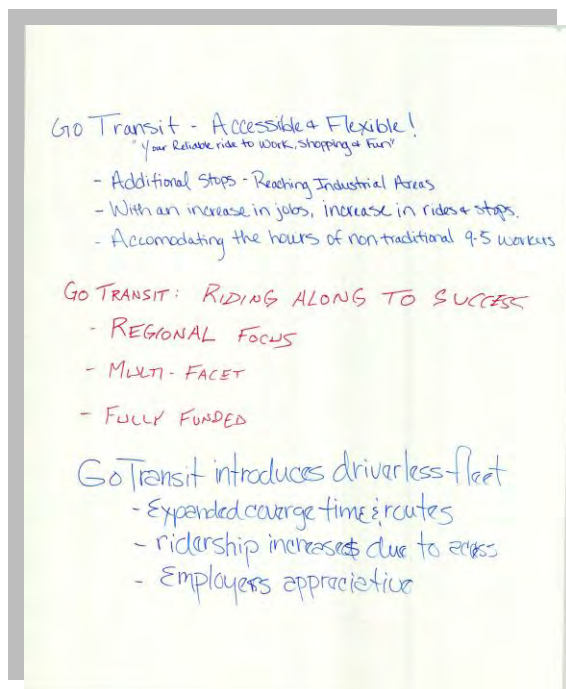 GO Transit - Accessible & Flexible!
"Your Reliable ride to Work, Shopping & Fun"
- Additional Stops - Reaching Industrial Areas
- With an increase in jobs, increase in rides & stops.
- Accomodating the hours of non traditional 9-5 workers
GO TRANSIT: RIDING ALONG TO SUCCESS
- REGIONAL FOCUS
- MULTI-FACET
- FULLY FUNDED
Go Transit introduces driverless fleet
- Expanded coverge time & routes
- ridership increases due to access
- Employers appreciative